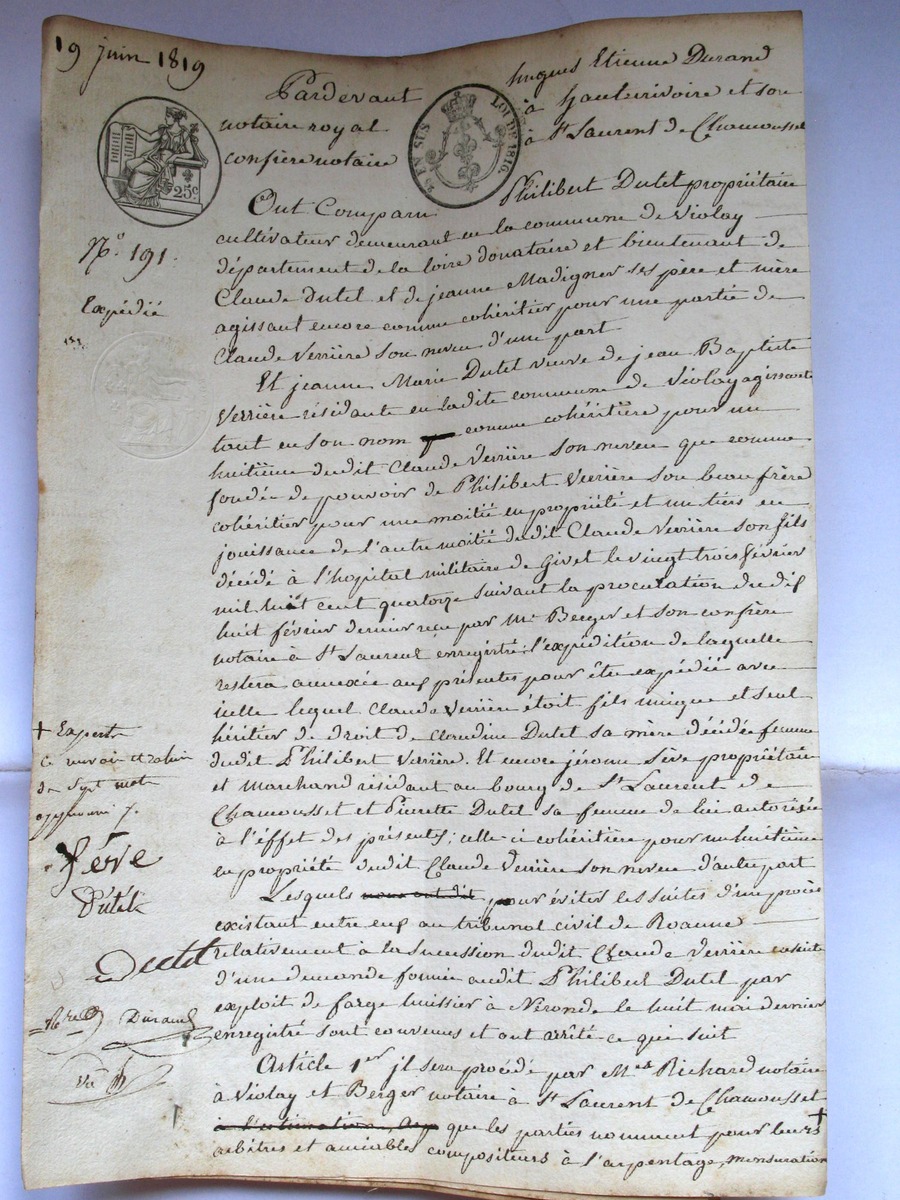 19 juin 1819
Pardevant hugues Etienne Durand
notaire royal à hauterivoire et son
confrere notaire à St Laurent de Chamousset
25c.
EN SUS LOI DE 1816.
Ont Comparu Philibert Dutel propriétaire
cultivateur demeurant en la commune de Violay
département de la loire donataire et bientenant de
Claude Dutel et de jeanne Madignier ses père et mère
agissant encore comme cohéritier pour une partie de
Claude Verrière son neveu d'une part
No. 191.
Expédié
Et jeanne Marie Dutel veuve de jean Baptiste
Verrière résidante en ladite commune de Violay agissante
tant en son nom comme cohéritière pour un
huitième dudit Claude Verrière son neveu que comme
fondée de pouvoir de Philibert Verrière son beau frère
cohéritier pour une moitié en propriété et un tiers en
jouissance de l'autre moitié dudit Claude Verrière son fils
décédé à l'hopital militaire de Givet le vingt trois février
mil huit cent quatorze suivant la procuration du dix
huit février dernier reçue par Me Berger et son confrère
notaire à St Laurent enregistré l'expédition de laquelle
restera annexée aux présentes pour être expédié avec
icelle lequel Claude Verrière étoit fils unique et seul
héritier de droit de Claudine Dutel sa mère décédée femme
dudit Philibert Verrière. Et encore jérome Sève propriétaire
et Marchand résidant au bourg de St Laurent de
Chamousset et Pierrette Dutel sa femme de lui autorisée
à l'effet des présentes; celle ci cohéritière pour un huitième
en propriété dudit Claude Verrière son neveu d'autre part
Lesquels nous ont dit pour éviter les suites d'un procès
existant entre eux au tribunal civil de Roanne
relativement à la sucession dudit Claude Verrière ensuite
d'une demande formée audit Philibert Dutel par
exploit de farge huissier à Néronde le huit mai dernier
enregistré sont convenus et ont arrêté ce que suit
Article 1er jl sera procédé par Mes Richard notaire
à Violay et Berger notaire à St Laurent de Chamousset
à l'estimation, que les parties nomment pour leurs +
arbitres et amiables compositeurs à l'arpentage, mensuration
+ Experts
Ce renvoi et
de sept mots
Sève
Dutel
Dutel
Durand